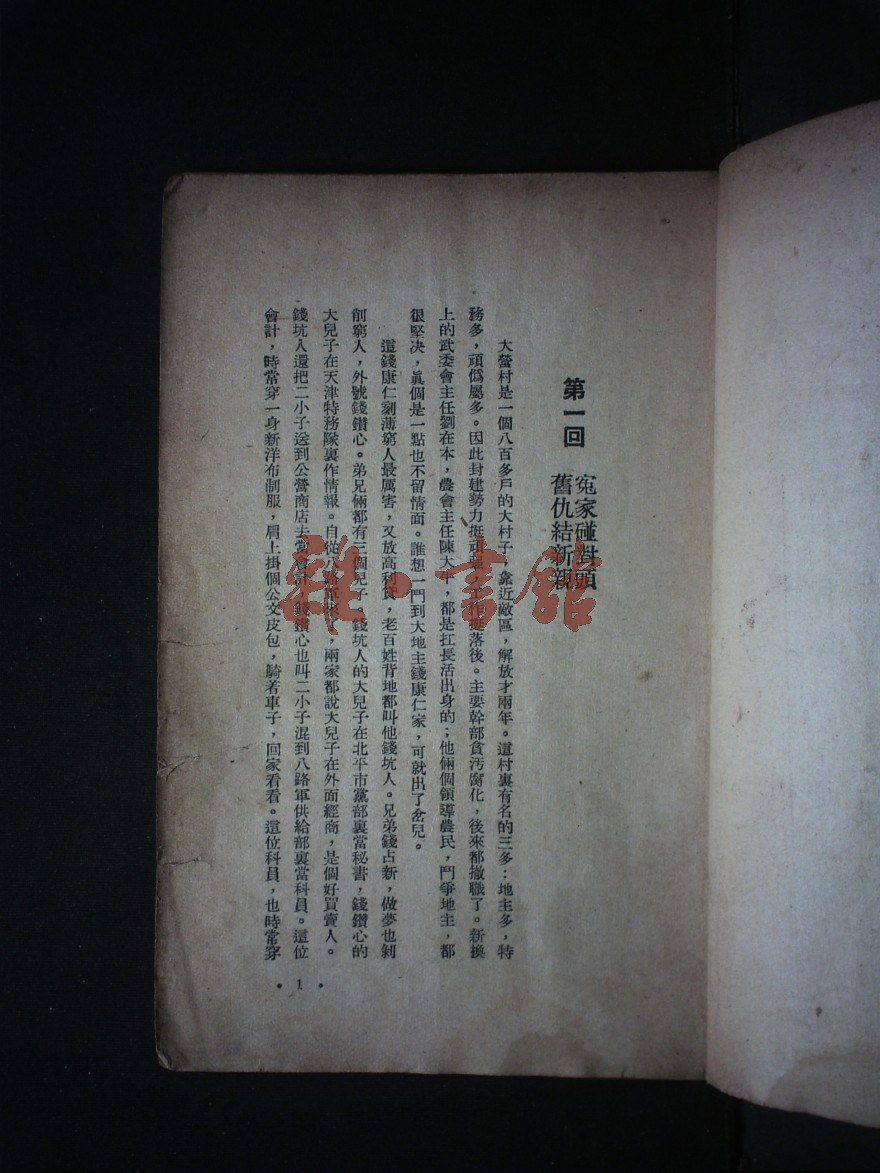 第一回
冤家碰對頭
舊仇結新親
大營村是一個八百多戶的大村子，靠近敵區，解放才兩年。這村裏有名的三多：地主多，特
務多，頑僞屬多。因此封建勢力挺頑強，工作挺落後。主要幹部貪污腐化，後來都撤職了。新換
上的武委會主任劉在本，農會主任陳大十，都是扛長活出身的；他倆個領導農民，鬥爭地主，都
很堅决，眞個是一點也不留情面。誰想一鬥到大地主錢康仁家，可就出了岔兒。
這錢康仁刻薄窮人最厲害，又放高利貸，老百姓背地都叫他錢坑人。兄弟錢占新，做夢也剝
削窮人，外號錢鑽心。弟兄倆都有三個兒子。錢坑人的大兒子在北平市黨部裏當秘書，錢鑽心的
大兒子在天津特務隊裏作情報。自從八路軍來了，兩家都說大兒子在外面經商，是個好買賣人。
錢坑人還把二小子送到公營商店去當會計，錢鑽心也叫二小子混到八路軍供給部裏當科員。這位
會計，時常穿一身新洋布制服，肩上掛個公文皮包，騎着車子，回家看看。這位科員，也時常穿
• 1 •
雜·書館